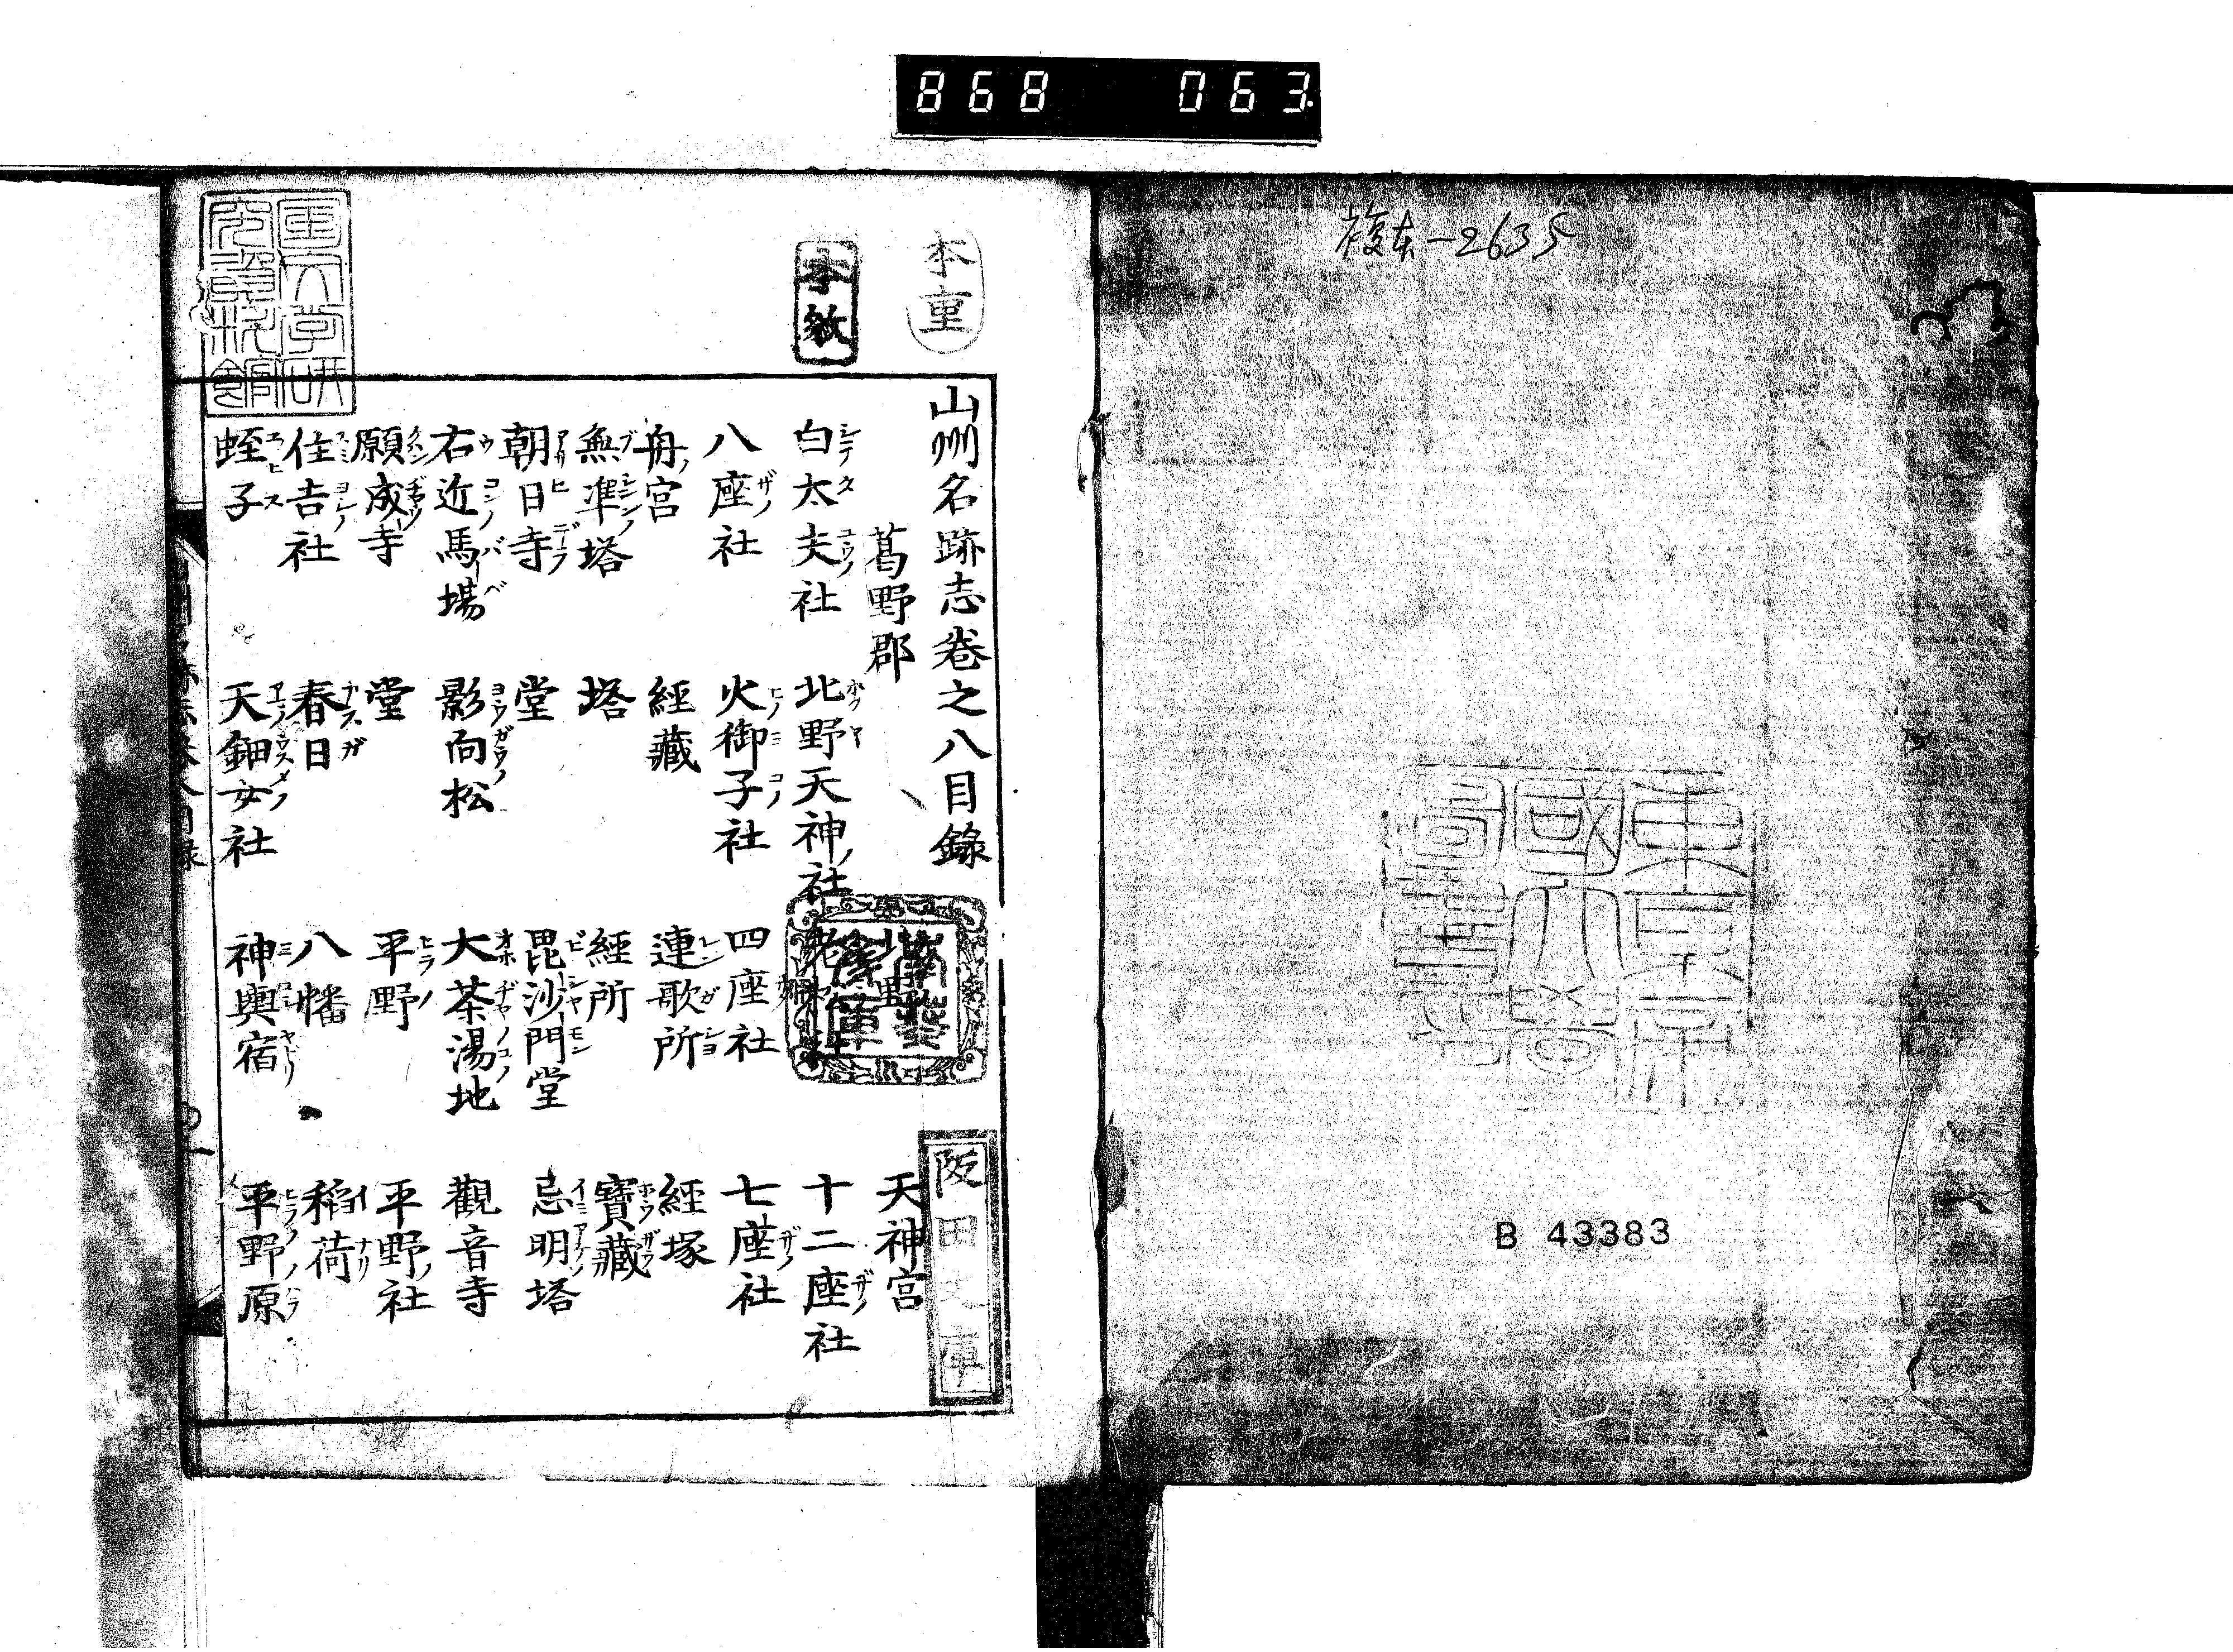 868 063
複本-2635
東京
帝國大學
圖書
B 43383
本重
阪田文庫
山州名跡志卷之八目錄
葛野郡 天神宮
白太夫社 北野天神ノ社 老松社 十二座社
八座社 火御子社 四座社 七座社
舟ノ宮 經藏 連歌所 經塚
無準塔 塔 經所 寶藏
朝日寺 堂 毘沙門堂 忌明塔
右近馬場 影向松 大茶湯地 觀音寺
願成寺 堂 平野 平野社
住吉社 春日 八幡 稻荷
蛭子 天鈿女社 神輿宿 平野原